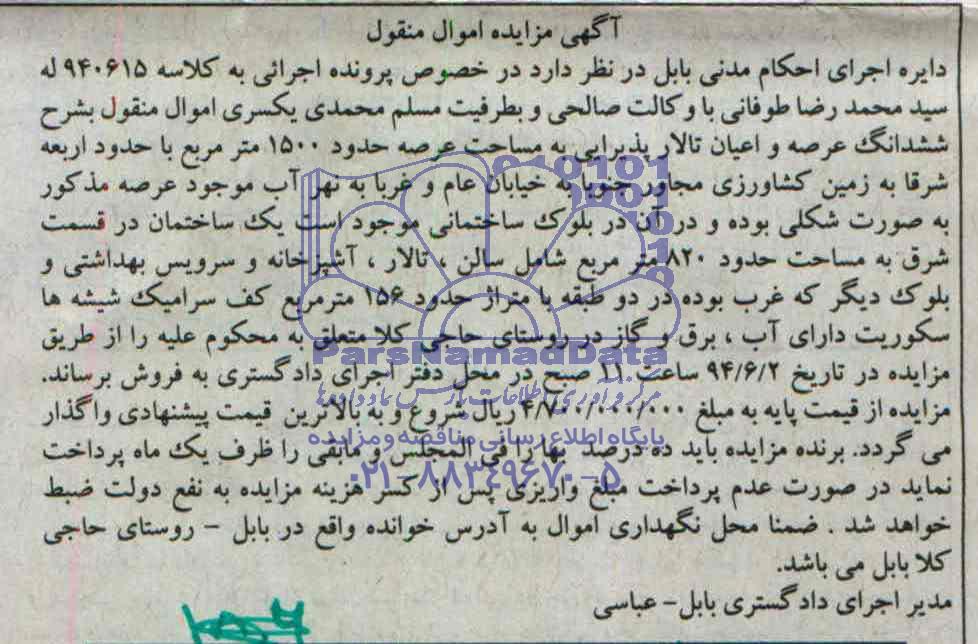 آگهی مزایده اموال منقول
دایره اجرای احکام مدنی بابل در نظر دارد در خصوص پرونده اجرائی به کلاسه ۹۴۰۶۱۵ له
سید محمد رضا طوفانی با وکالت صالحی و بطرفیت مسلم محمدی یکسری اموال منقول بشرح
ششدانگ عرصه و اعیان تالار پذیرایی به مساحت عرصه حدود ۱۵۰۰ متر مربع با حدود اربعه
شرقا به زمین کشاورزی مجاور جنوبا به خیابان عام و غربا به نهر آب موجود عرصه مذکور
به صورت شکلی بوده و در آن در بلوک ساختمانی موجود است یک ساختمان در قسمت
شرق به مساحت حدود ۸۲۰ متر مربع شامل سالن ، تالار ، آشپزخانه و سرویس بهداشتی و
بلوک دیگر که غرب بوده در دو طبقه با متراژ حدود ۱۵۶ مترمربع کف سرامیک شیشه ها
سکوریت دارای آب ، برق و گاز در روستای حاجی کلا متعلق به محکوم علیه را از طریق
ParsNamadData
مزایده در تاریخ ۹۴/۶/۲ ساعت ۱۱ صبح در محل دفتر اجرای دادگستری به فروش برساند.
مزایده از قیمت پایه به مبلغ ۴/۷۰۰/۰۰۰/۰۰۰ ریال شروع و به بالاترین قیمت پیشنهادی واگذار
پایگاه اطلاع رسانی مناقصه و مزایده
می گردد. برنده مزایده باید ده درصد بها را فی المجلس و مابقی را ظرف یک ماه پرداخت
۰۲۱-۸۸۳۴۹۶۷۰-۵
نماید در صورت عدم پرداخت مبلغ واریزی پس از کسر هزینه مزایده به نفع دولت ضبط
خواهد شد . ضمنا محل نگهداری اموال به آدرس خوانده واقع در بابل - روستای حاجی
کلا بابل می باشد.
مدیر اجرای دادگستری بابل- عباسی